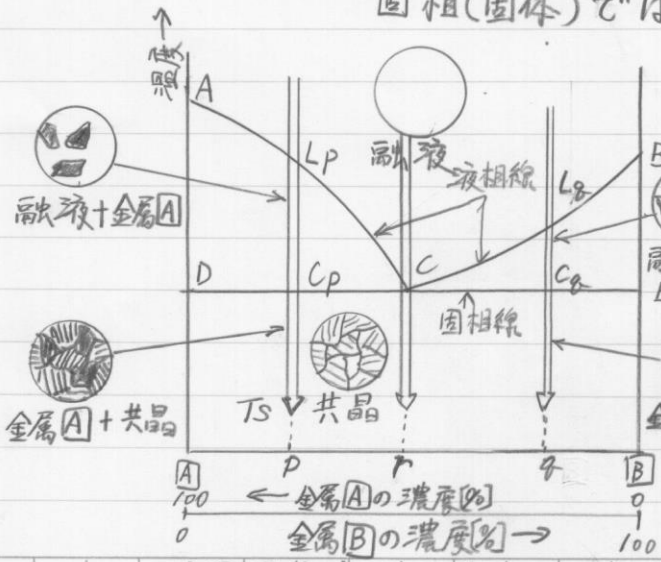 固相(固体)では
温度→
A
融液+金属A
Lp
融液
液相線
Lq
B
D
Cp
C
Cq
固相線
金属A+共晶
Ts
共晶
A
p
r
q
B
100
←金属Aの濃度[%]
0
0
金属Bの濃度[%]→
100